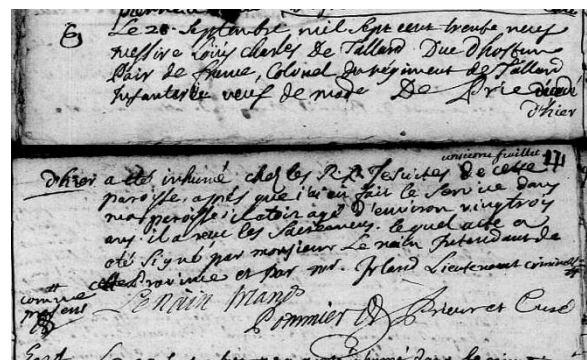 Le 20 Septembre mil sept cent trente neuf
messire Louis Charles de Tallard Duc d'hostun
Pair de france, Colonel du regiment de Tallard
Infanterie veuf de made De Prie décédé
d'hier
onzieme feuillet 171
d'hier a eté inhumé chez les R.P. Jesuites de cette
paroisse, après que j'ai eu fait le service dans
ma paroisse; il etoit agé d'environ vingt trois
ans. il a reçu les Sacremens. lequel acte a
eté signé par monsieur Le nain Intendant de
cette Province et par mr. Irland Lieutenant criminel
comme
presens
Lenain Irland
Pommier Prieur et Curé